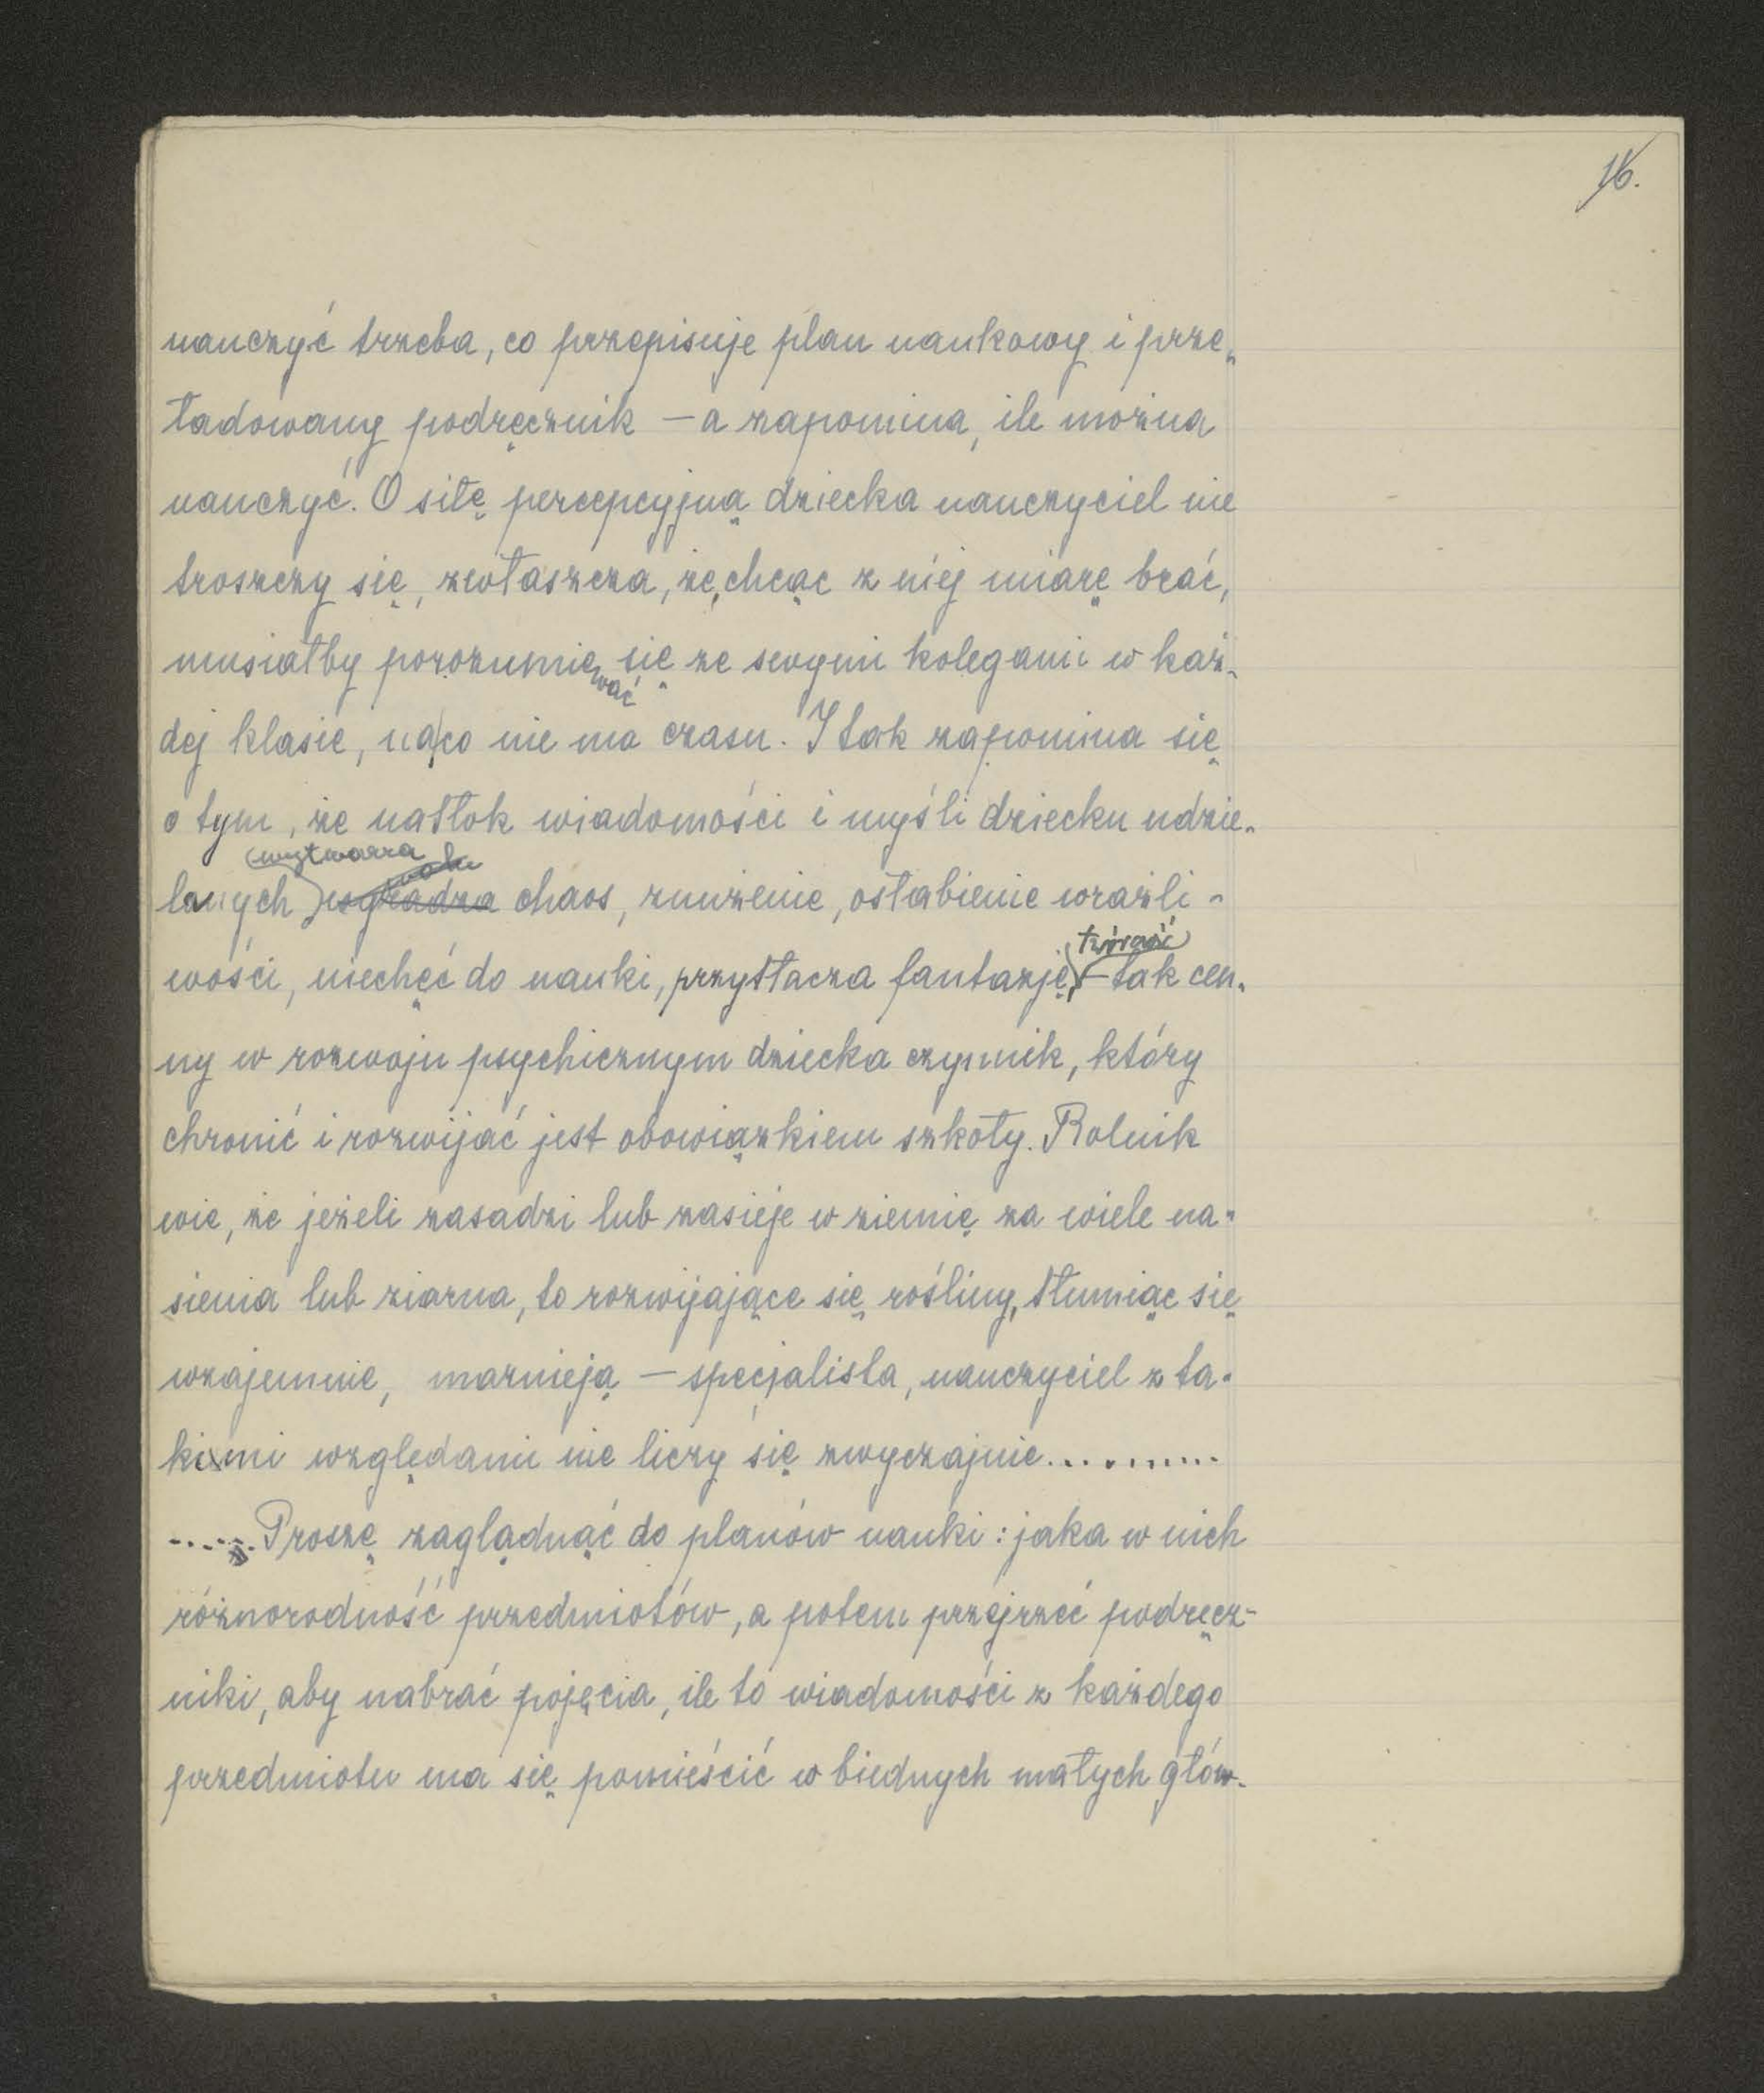 16.
nauczyć trzeba, co przepisuje plan naukowy i prze-
ładowany podręcznik — a zapomina, ile można
nauczyć. O siłę percepcyjną dziecka nauczyciel nie
troszczy się, zwłaszcza, że, chcąc z niej miarę brać,
musiałby porozumiewać się ze swymi kolegami w każ-
dej klasie, na co nie ma czasu. I tak zapomina się
o tym, że natłok wiadomości i myśli dziecku udzie-
wytwarza
lanych chaos, znużenie, osłabienie wrażli-
twórczość
wości, niechęć do nauki, przytłacza fantazję, — tak cen-
ny w rozwoju psychicznym dziecka czynnik, który
chronić i rozwijać jest obowiązkiem szkoły. Rolnik
wie, że jeżeli zasadzi lub zasieje w ziemię za wiele na-
sienia lub ziarna, to rozwijające się rośliny, tłumiąc się
wzajemnie, marnieją — specjalista, nauczyciel z ta-
kimi względami nie liczy się zwyczajnie..........
...... Proszę zaglądnąć do planów nauki: jaka w nich
różnorodność przedmiotów, a potem przejrzeć podręcz-
niki, aby nabrać pojęcia, ile to wiadomości z każdego
przedmiotu ma się pomieścić w biednych małych głów-